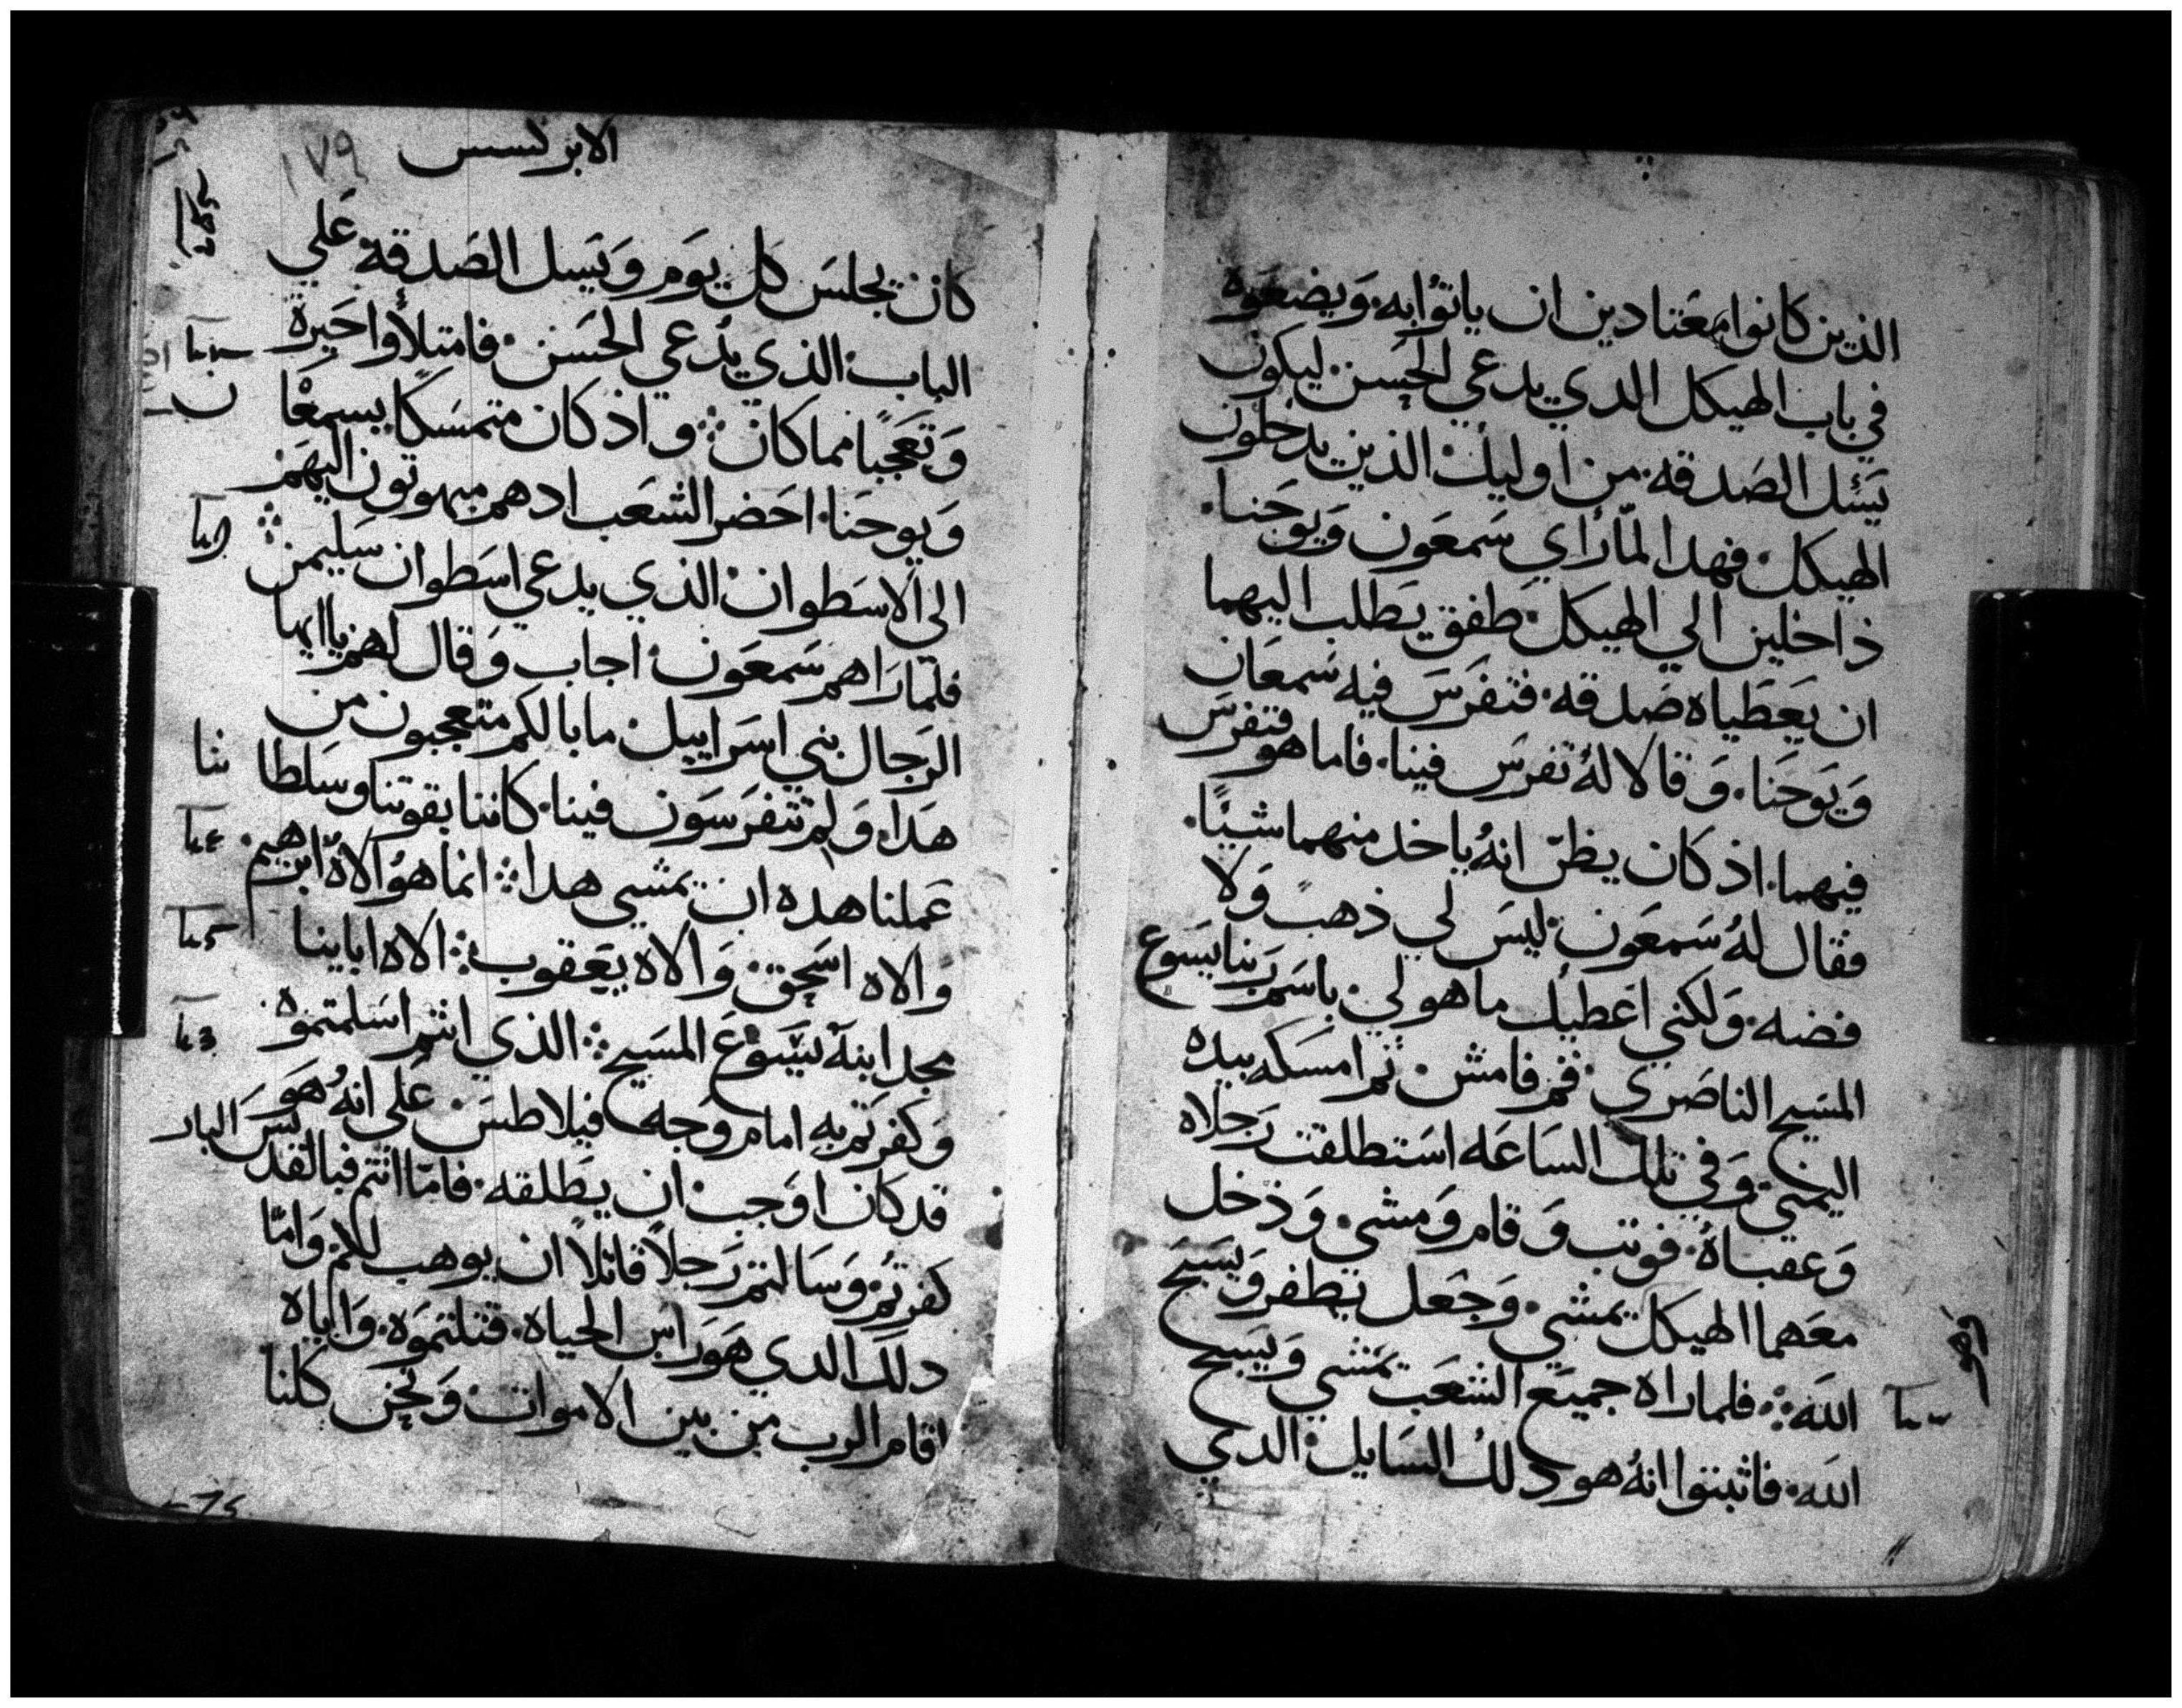 الذين كانوا معتادين ان ياتوا به. ويضعوه
في باب الهيكل الدي يدعي الحسن ليكون
يسئل الصدقه. من اوليك الذين يدخلون
الهيكل. فهدا لما راي سمعون ويوحنا.
داخلين الي الهيكل. طفق يطلب اليهما
ان يعطياه صدقه. فتفرس فيه سمعان
ويوحنا. وقالا له تفرس فينا. فاما هو فتفرس
فيهما. اذ كان يظن انه ياخد منهما شيئا.
فقال له سمعون. ليس لي ذهب ولا
فضه. ولكني اعطيك ما هو لي. باسم ربنا يسوع
المسيح الناصري. قم فامش. ثم امسكه بيده
اليمني. وفي تلك الساعه استطلقت رجلاه
وعقباه. فوثب وقام ومشي. ودخل
معهما الهيكل يمشي. وجعل يطفر ويسبح
الله ܀ فلما راه جميع الشعب يمشي ويسبح
الله. فاثبتوا انه هو دلك السايل الدي
وهو
الابركسس
١٧٩
كان يجلس كل يوم ويسل الصدقه علي
الباب الذي يدعي الحسن. فامتلأوا حيرة
وتعجبا مما كان ܀ واذ كان متمسكا بسمعا ن
ويوحنا. احضر الشعب ادهم مبهوتون اليهم
الي الاسطوان. الذي يدعي اسطوان سليمن ܀
فلما راهم سمعون. اجاب وقال لهم يا ايها
الرجال بني اسراييل. ما بالكم متعجبون من
هدا. ولم تتفرسون فينا. كاننا بقوتنا وسلطا ننا
عملنا هده ان يمشي هدا ܀ انما هو الاه ابرهيم.
والاه اسحق. والاه يعقوب ܀ الاه اباينا
مجد ابنه يسوع المسيح ܀ الذي انتم اسلمتموه.
وكفرتم به امام وجه فيلاطس. علي انه هو
قد كان اوجب ان يطلقه. فاما انتم فبالقدس البار
كفرتم. وسالتم رجلا قاتلا ان يوهب لكم. واما
دلك الدي هو راس الحياه. قتلتموه. واياه
اقام الرب من بين الاموات. ونحن كلنا